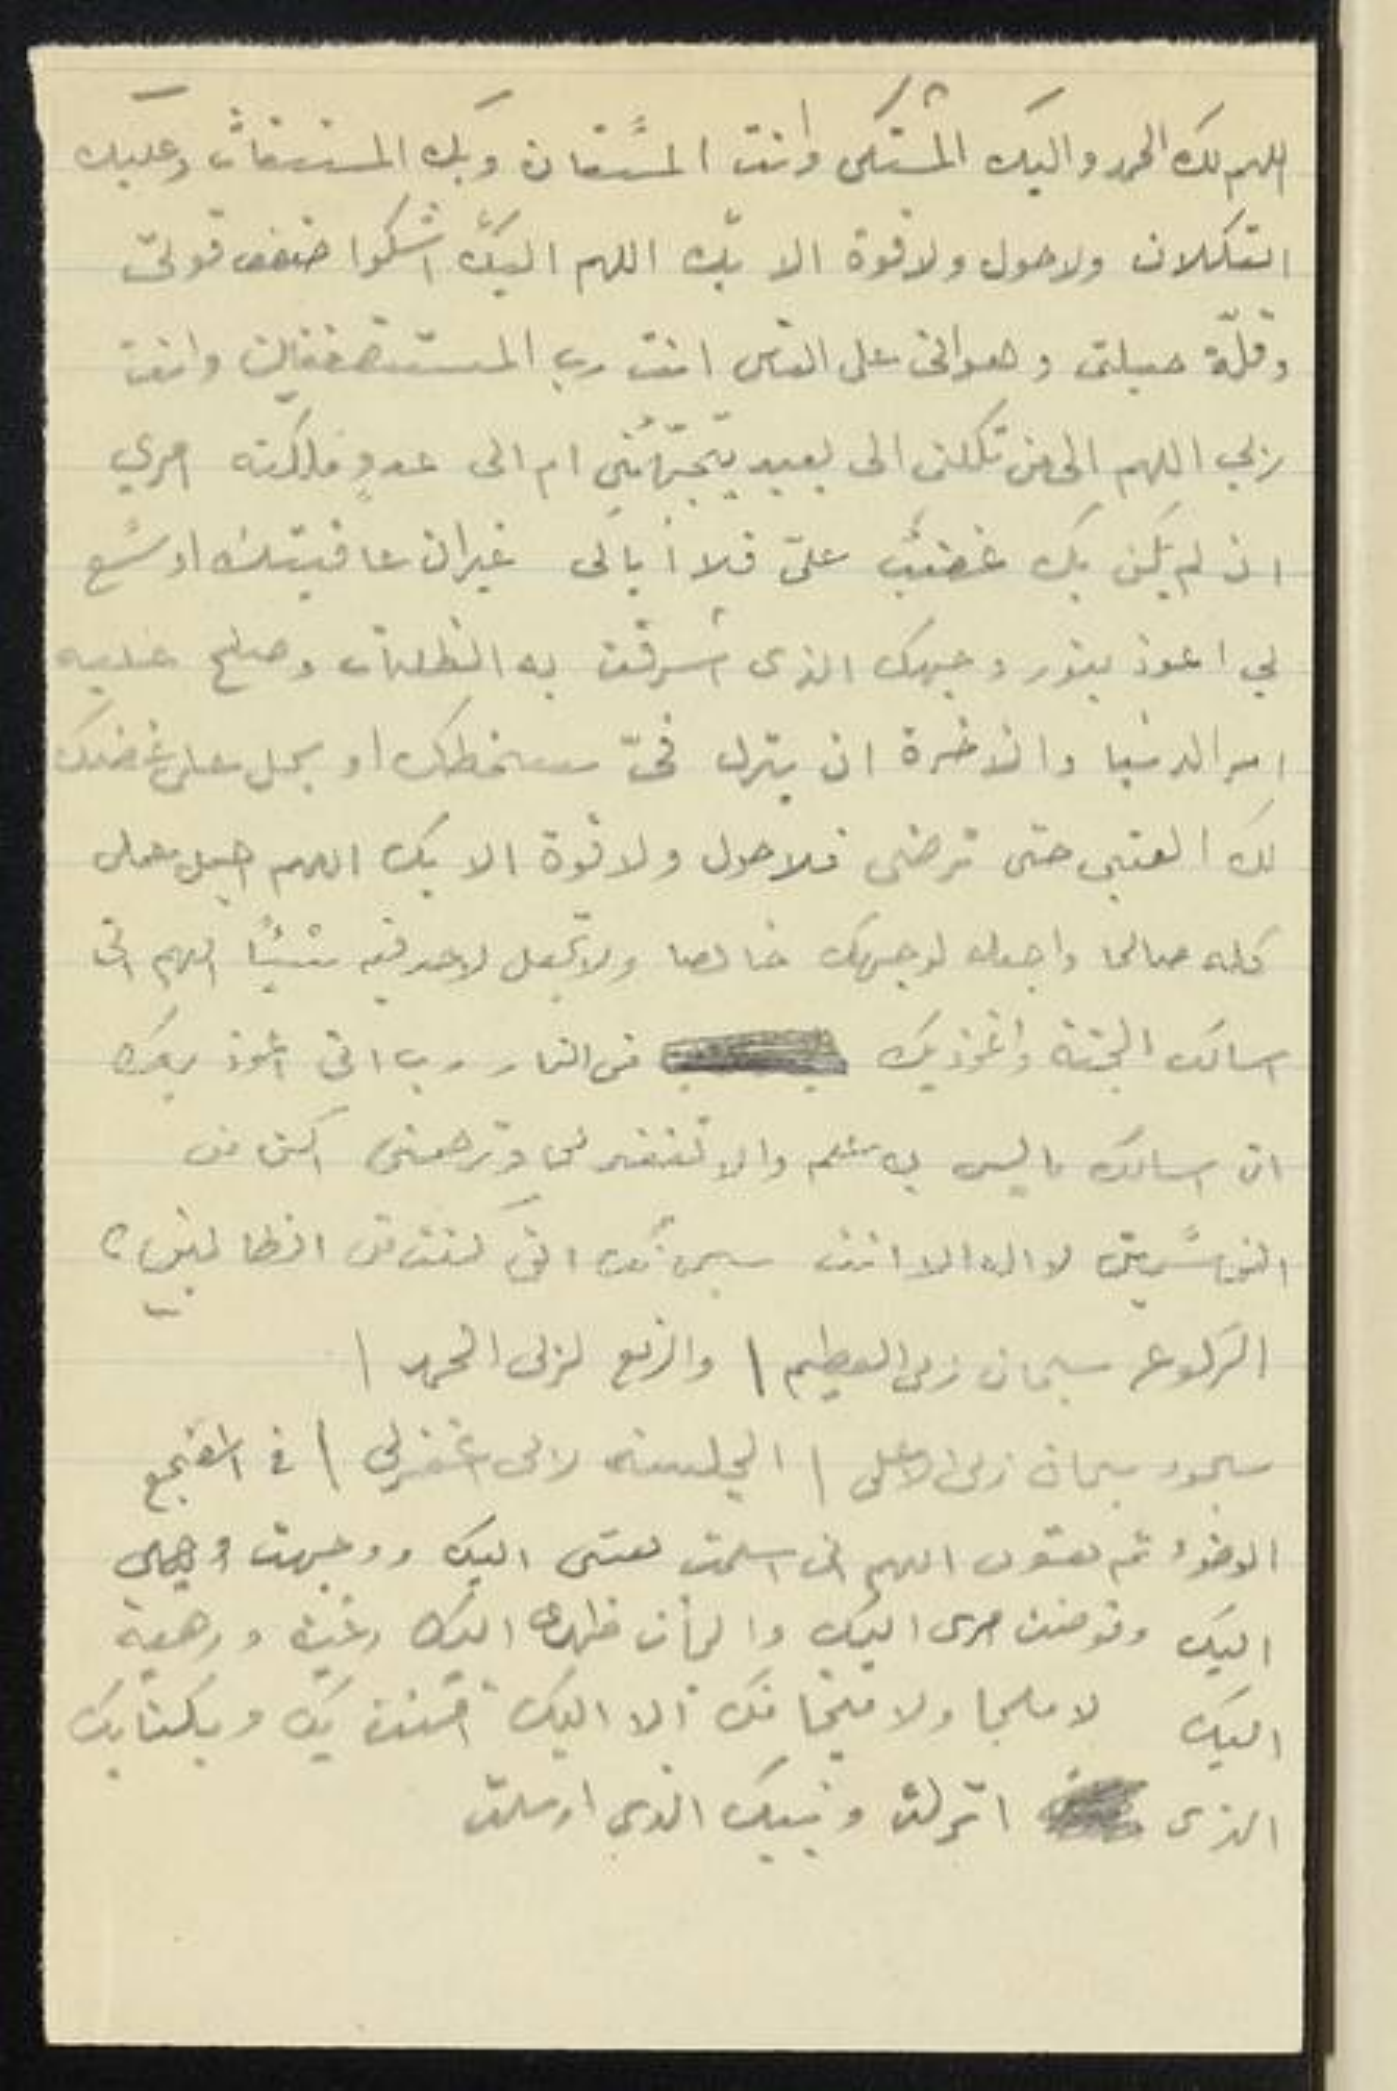 اللهم لك الحمد واليك المشتكى وانت المستعان وبك المستغاث وعليك
التكلان ولا حول ولا قوة الا بك اللهم اليك اشكوا ضعف قوتي
وقلّة حيلتى وهوانى على الناس انت رب المستضعفين وانت
ربي اللهم الى من تكلنى الى بعيد يتجهّمُني ام الى عدوٍ ملكته امري
ان لم يكن بك غضبٌ علىّ فلا أبالى غير ان عافيتك اوسع
لي اعوذ بنور وجهك الذى اشرقت به الظلمات وصلح عليه
امر الدنيا والاخرة ان ينزل فىّ سخطك او يحل على غضبك
لك العتبى حتى ترضى فلا حول ولا قوة الا بك اللهم اجعل عملى
كله صالحا واجعله لوجهك خالصا ولا تجعل لاحد فيه شيئاً اللهم انى
اسالك الجنة واعوذ بك من النار رب انى اعوذ بك
ان اسالك ما ليس لى علم والا تغفر لى وترحمنى اكن من
الخاسرين لا اله الا انت سبحانك انى كنت من الظالمين
الركوع سبحان ربى العظيم | والرفع لربى الحمد |
سجود سبحان ربى الاعلى | الجلسة ربى اغفرلي | فى المضجع
الوضوء ثم تقول اللهم انى اسلمت نفسى اليك ووجهت وجهى
اليك وفوضت امرى اليك والجأت ظهرى اليك رغبة ورهبة
اليك لا ملجا ولا منجا منك الا اليك امنت بك وبكتابك
الذى انزلت ونبيك الذي ارسلت